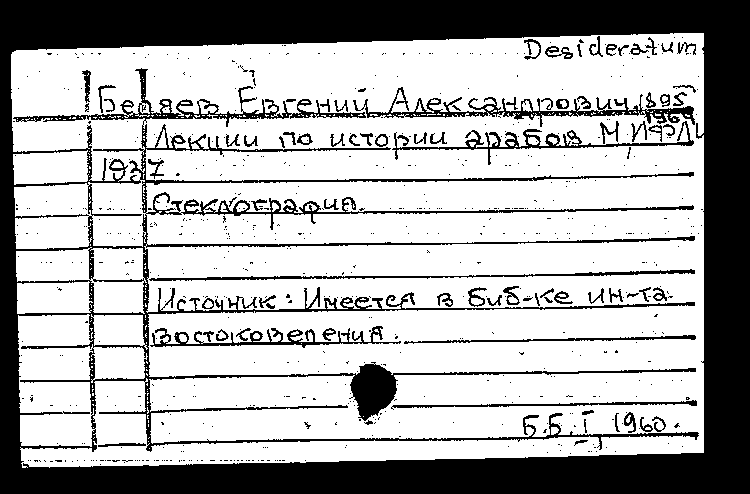 Desideratum
Беляев, Евгений Александрович, 1895
1964
Лекции по истории арабов. М, ИФЛИ
1937.
Стеклография.
Источник: Имеется в биб-ке ин-та
востоковедения.
Б.Б. I, 1960.